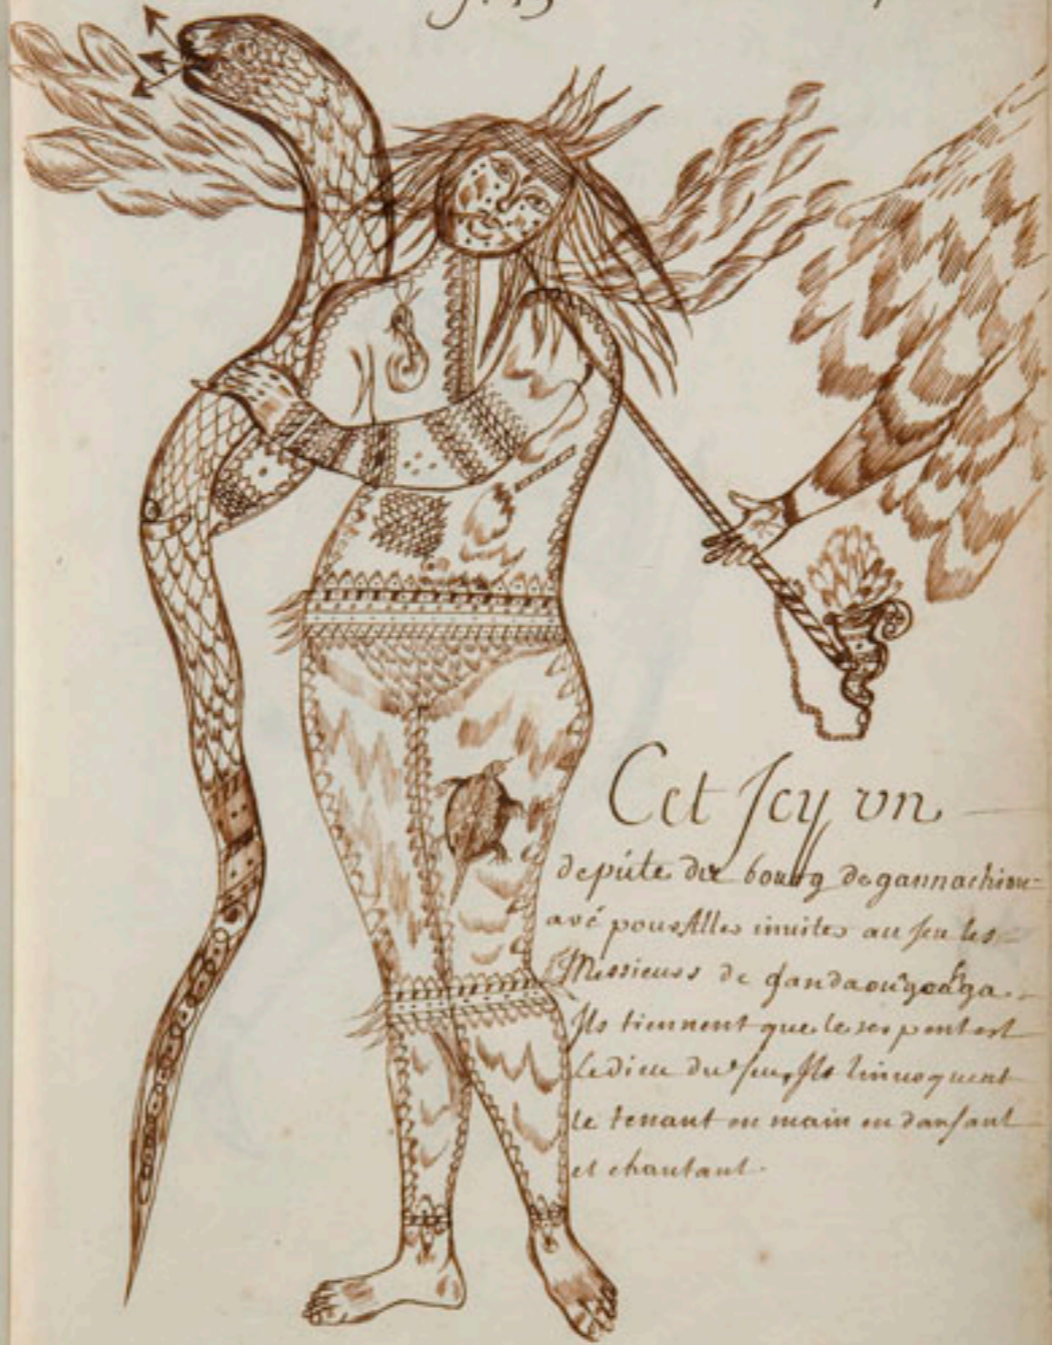 Cet Jcy vn
depúte du bourg de gannachiou-
avé pour Aller inuiter au Jeu les
Messieurs de gandaouagoahga.
Ils tiennent que le serpent est
Le dieu du feu, Ils linuoquent
le tenant en main en dansant
et chantant.